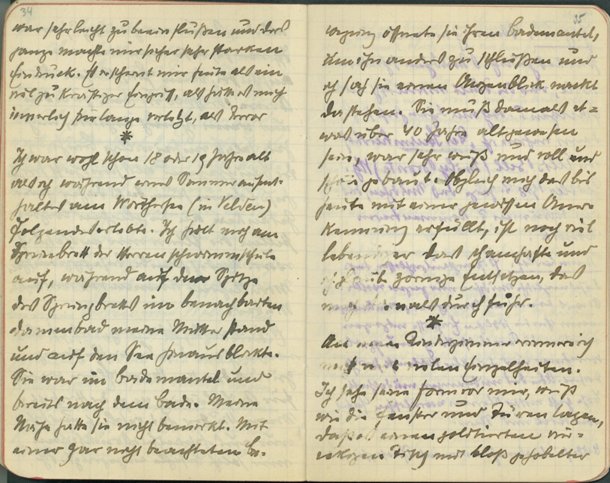 34
war sehr leicht zu beeinflussen und das
ganze machte mir sicher sehr starken
Eindruck. Es erscheint mir heute als ein
viel zu kräftiger Eingriff, als hätte es mich
innerlich sehr lange verletzt, als Terror
*
Ich war wohl schon 18 oder 19 Jahre alt
als ich während eines Sommeraufent-
haltes am Wörthersee (in Velden)
Folgendes erlebte. Ich hielt mich am
Sprungbrett der Herrenschwimmschule
auf, während auf der Spitze
des Sprungbretts im benachbarten
Damenbad meine Mutter stand
und auf den See hinausblickte.
Sie war im Bademantel und
bereits nach dem Bade. Meine
Nähe hatte sie nicht bemerkt. Mit
einer gar nicht beachteten Be-
35
wegung öffnete sie ihren Bademantel,
um ihn anders zu schließen und
ich sah sie einen Augenblick nackt
dastehen. Sie muß damals et-
was über 40 Jahre alt gewesen
sein, war sehr weiß und voll und
schön gebaut. Obgleich mich das bis
heute mit einer gewissen Aner-
kennung erfüllt, ist noch viel
lebendiger das schamhafte und
zornige Entsetzen, das
mich damals durchfuhr.
*
An mein Kinderzimmer erinnere ich
mich in vielen Einzelheiten.
Ich sehe seine Form vor mir, weiß
wie die Fenster und Türen lagen,
daß es einen polierten vier-
eckigen Tisch mit bloß gehobelter